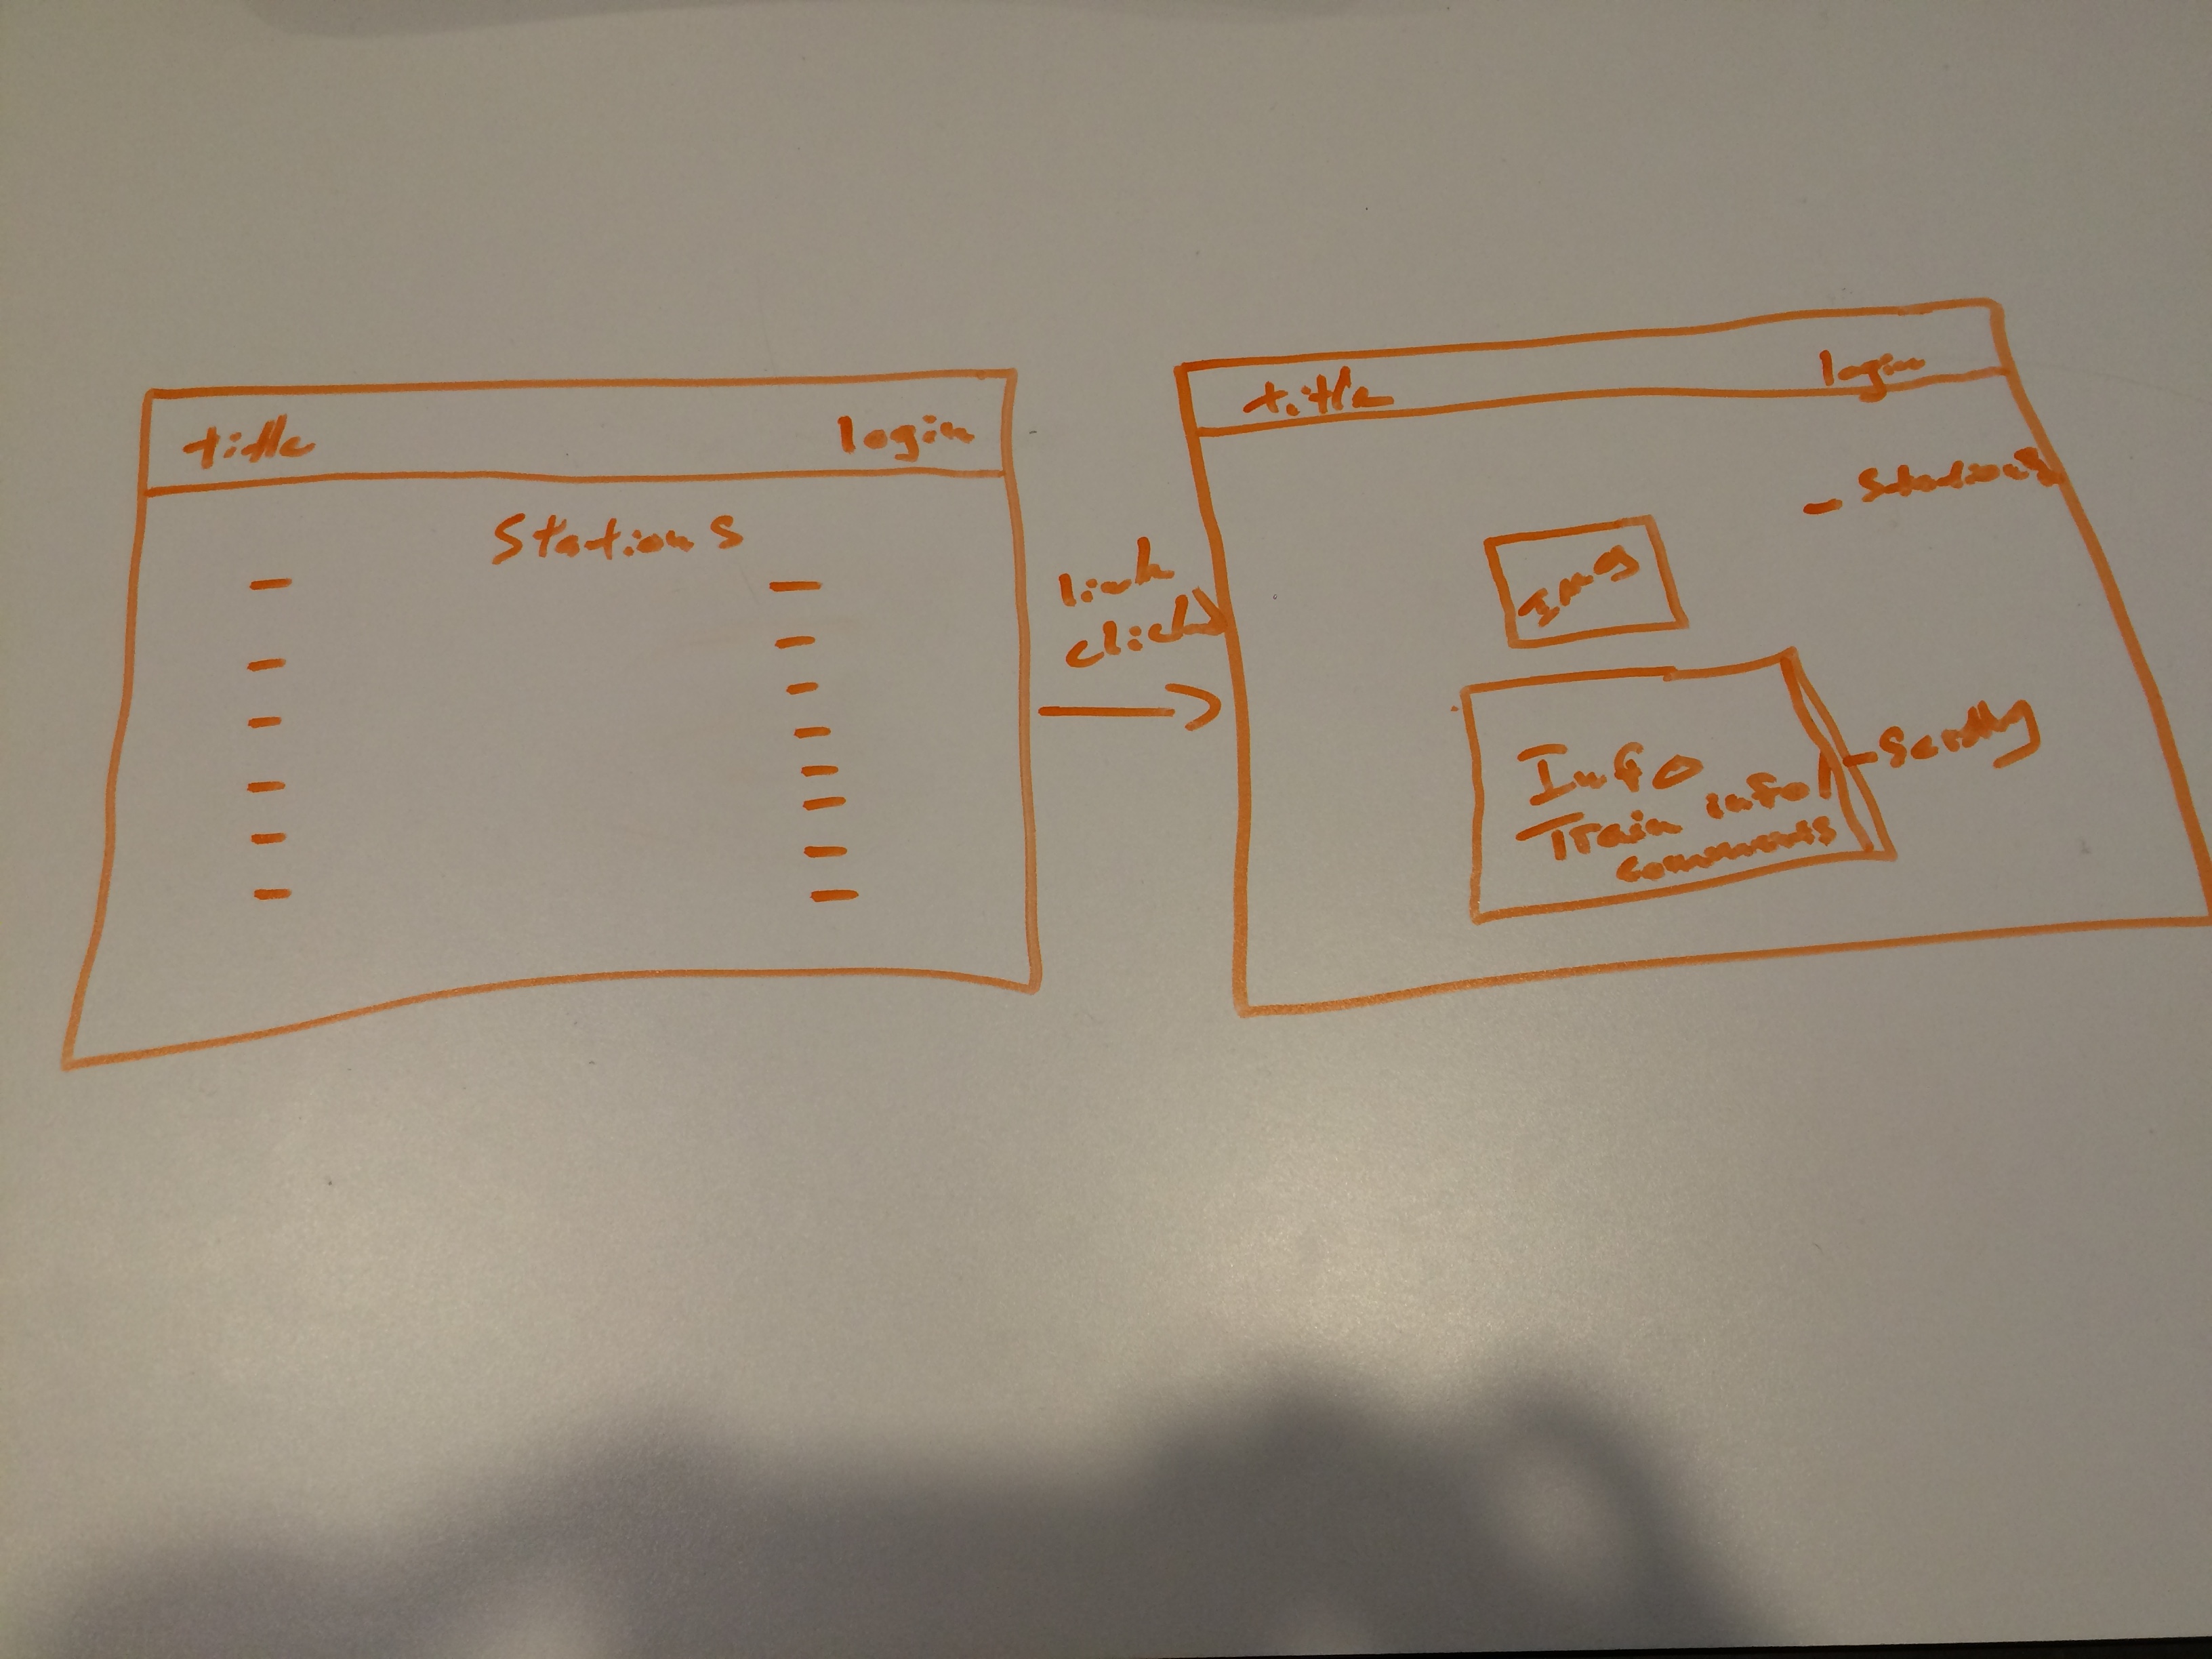 title
login
Stations
link
title
login
- Stations
Img
Info
Train info
comments